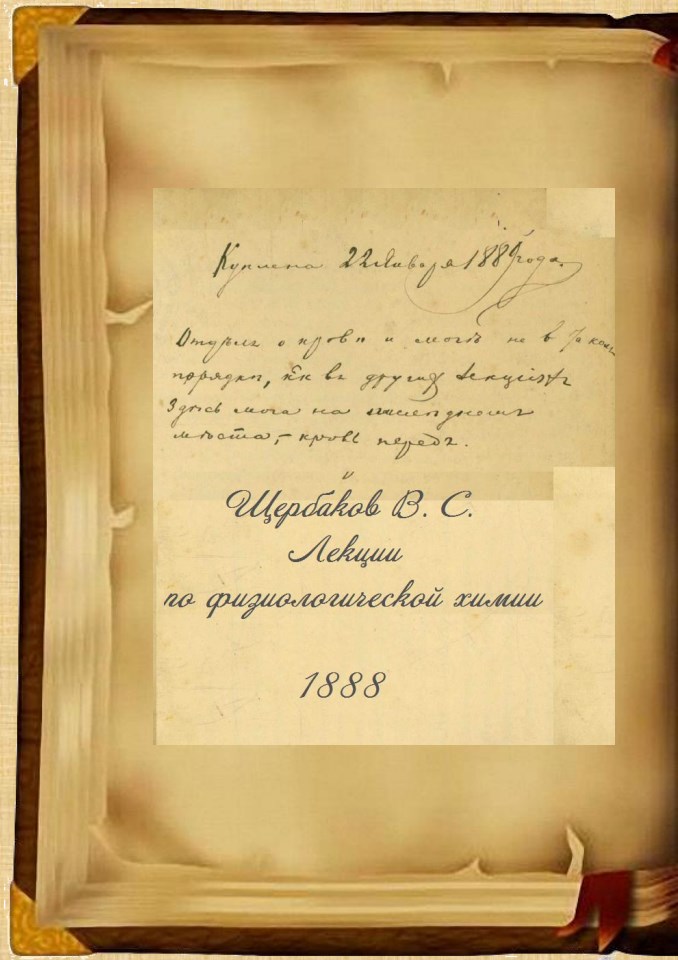 Куплена 22 Января 1889 года.
Отделы о крови и моче не в такомъ
порядке, какъ въ другихъ лекціяхъ
Здесь моча на последнемъ
месте, – кровь передъ.
Щербаков В. С.
Лекции
по физиологической химии
1888